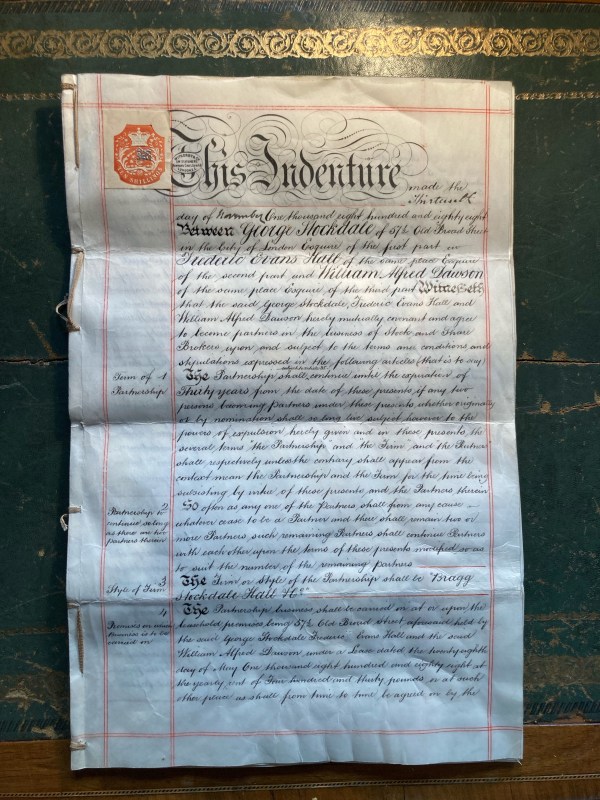 TEN SHILLINGS
This Indenture
made the
Thirteenth
day of November One thousand eight hundred and eighty eight
Between George Stockdale of 57½ Old Broad Street
in the City of London Esquire of the first part
Frederic Evans Hall of the same place Esquire
of the second part and William Alfred Dawson
of the same place Esquire of the third part Witnesseth
that the said George Stockdale, Frederic Evans Hall and
William Alfred Dawson hereby mutually covenant and agree
to become partners in the business of Stock and Share
Brokers upon and subject to the terms and conditions and
stipulations expressed in the following articles (that is to say)
Term of 1
Partnership
The Partnership shall continue until the expiration of
Thirty years from the date of these presents, if any two
persons becoming partners under these presents whether originally
or by nomination shall so long live subject however to the
powers of expulsion hereby given and in these presents, the
several terms "the Partnership" and "the Firm" and the Partners
shall respectively unless the contrary shall appear from the
context mean the Partnership and the Firm for the time being
subsisting by virtue of these presents and the Partners therein
2
Partnership to
continue so long
as there are two
partners therein
So often as any one of the Partners shall from any cause
whatever cease to be a Partner and there shall remain two or
more Partners, such remaining Partners shall continue Partners
with each other upon the terms of these presents modified so as
to suit the number of the remaining partners
3
Style of Firm
The Firm or Style of the Partnership shall be Bragg
Stockdale Hall & Co
4
Premises on which
business is to be
carried on
The Partnership business shall be carried on at or upon the
leasehold premises being 57½ Old Broad Street aforesaid held by
the said George Stockdale Frederic Evans Hall and the said
William Alfred Dawson under a Lease dated the twenty eighth
day of May One thousand eight hundred and eighty eight at
the yearly rent of Four hundred and thirty pounds or at such
other place as shall from time to time be agreed on by the